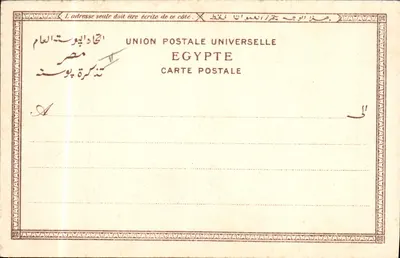 L'adresse seule doit être écrite de ce côté.
UNION POSTALE UNIVERSELLE
EGYPTE
CARTE POSTALE
اتحاد البوسته العام
مصر
تذكرة بوسته
A
الى